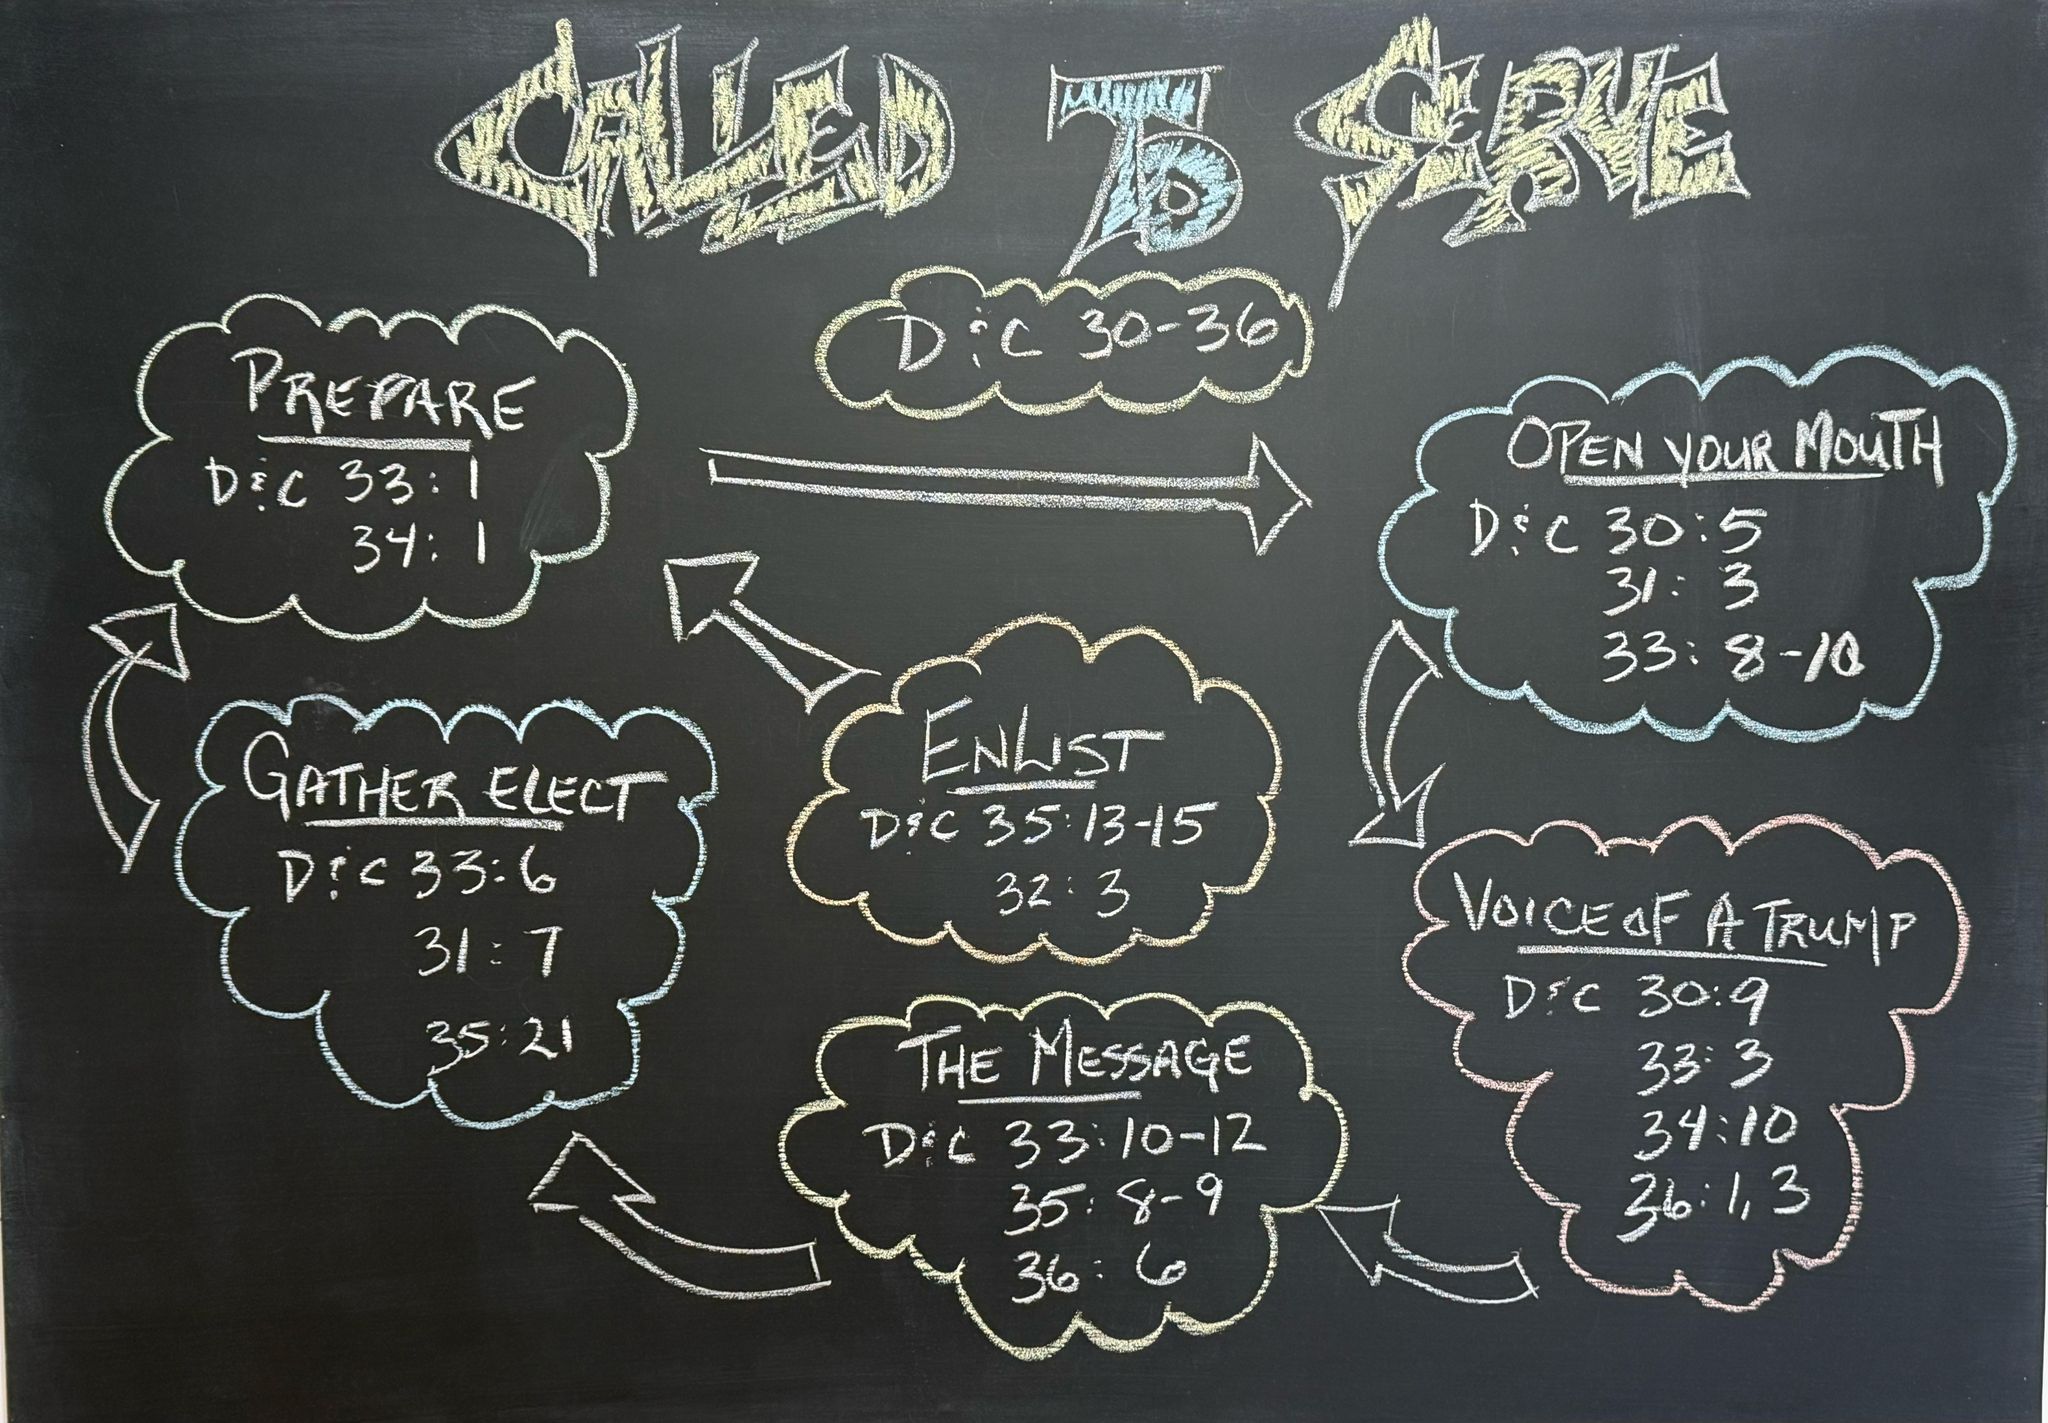 CALLED TO SERVE
D&C 30-36
PREPARE
D&C 33:1
34:1
OPEN YOUR MOUTH
D&C 30:5
31:3
33:8-10
VOICE OF A TRUMP
D&C 30:9
33:3
34:10
36:1,3
THE MESSAGE
D&C 33:10-12
35:8-9
36:6
GATHER ELECT
D&C 33:6
31:7
35:21
ENLIST
D&C 35:13-15
32:3